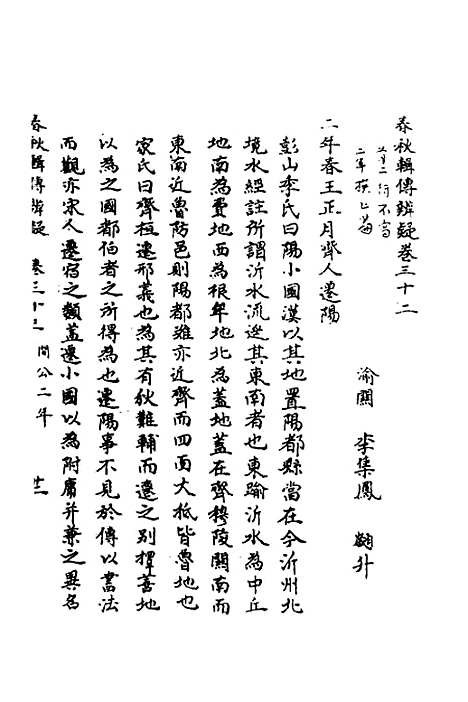 春秋輯傳辨疑卷三十二
渝關 李集鳳 翽升
二年春王正月齊人遷陽
彭山季氏曰陽小國漢以其地置陽都縣當在今沂州北
境水經註所謂沂水流逕其東南者也東踰沂水為中丘
地南為費地西為根牟地北為蓋地蓋在齊穆陵關南而
東南近魯防邑則陽都雖亦近齊而四面大抵皆魯地也
家氏曰齊桓遷邢義也為其有狄難輔而遷之別擇善地
以為之國都伯者之所得為也遷陽事不見於傳以書法
而觀亦宋人遷宿之類蓋遷小國以為附庸并兼之異名
春秋輯傳辨疑 卷三十二 閔公二年